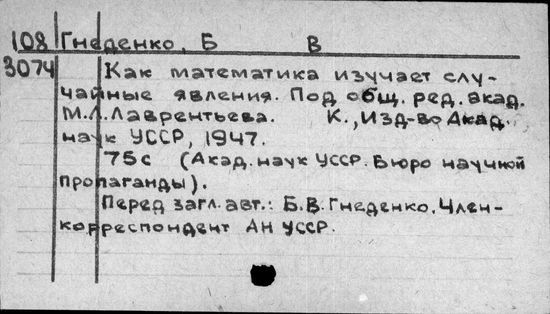 108 Гнеденко, Б В
3074 Как математика изучает слу-
чайные явления. Под общ. ред. акад.
М.А.Лаврентьева. К., Изд-во Акад.
наук УССР, 1947.
75с (Акад. наук УССР. Бюро научной
пропаганды).
Перед загл. авт.: Б.В. Гнеденко, Член-
корреспондент АН УССР.